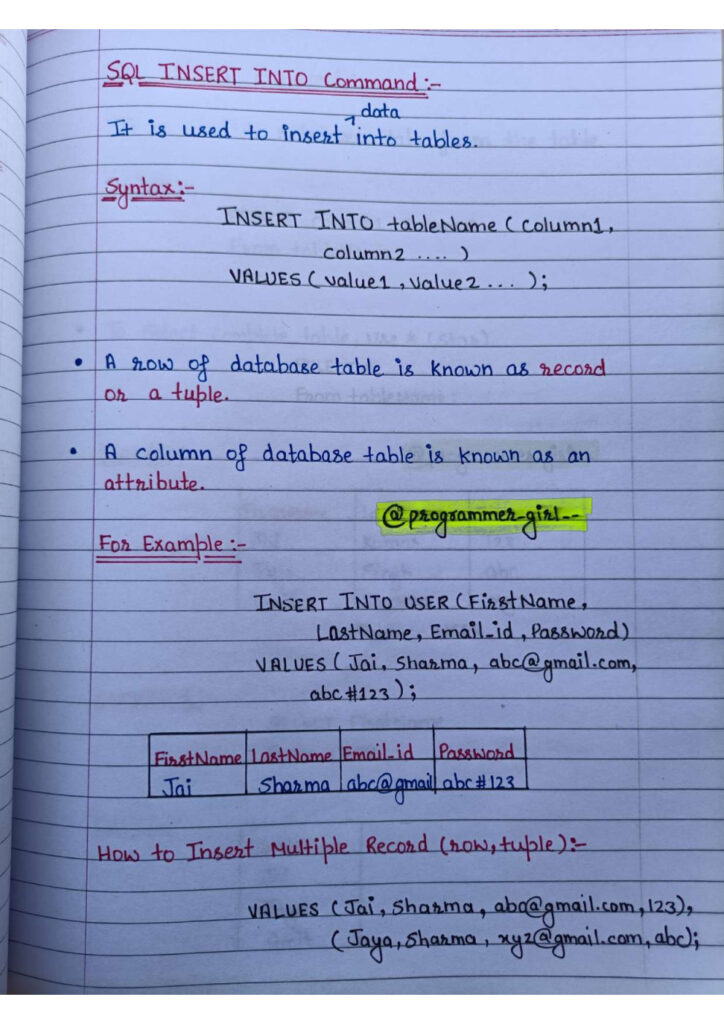 SQL INSERT INTO Command :-
data
It is used to insert into tables.
Syntax :-
INSERT INTO tableName ( Column1,
Column2 .... )
VALUES ( value1 , value2 ... ) ;
• A row of database table is known as record
or a tuple.
• A column of database table is known as an
attribute.
@programmer_girl_--
For Example :-
INSERT INTO USER ( FirstName ,
LastName, Email_id , Password)
VALUES ( Jai, Sharma, abc@gmail.com,
abc#123 ) ;
FirstName LastName Email_id Password
Jai Sharma abc@gmail abc#123
How to Insert Multiple Record (row, tuple) :-
VALUES ( Jai, Sharma, abc@gmail.com, 123),
( Jaya, Sharma, xyz@gmail.com, abc);